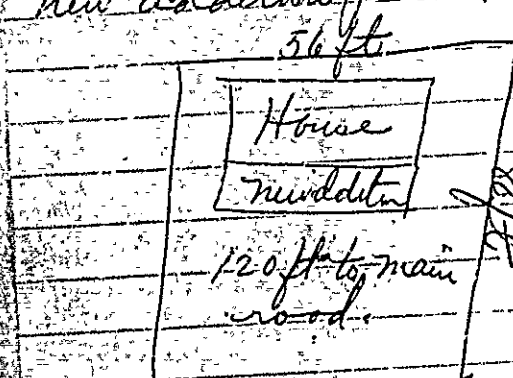 new
56 ft
House
newddition
120 ft to main
road.